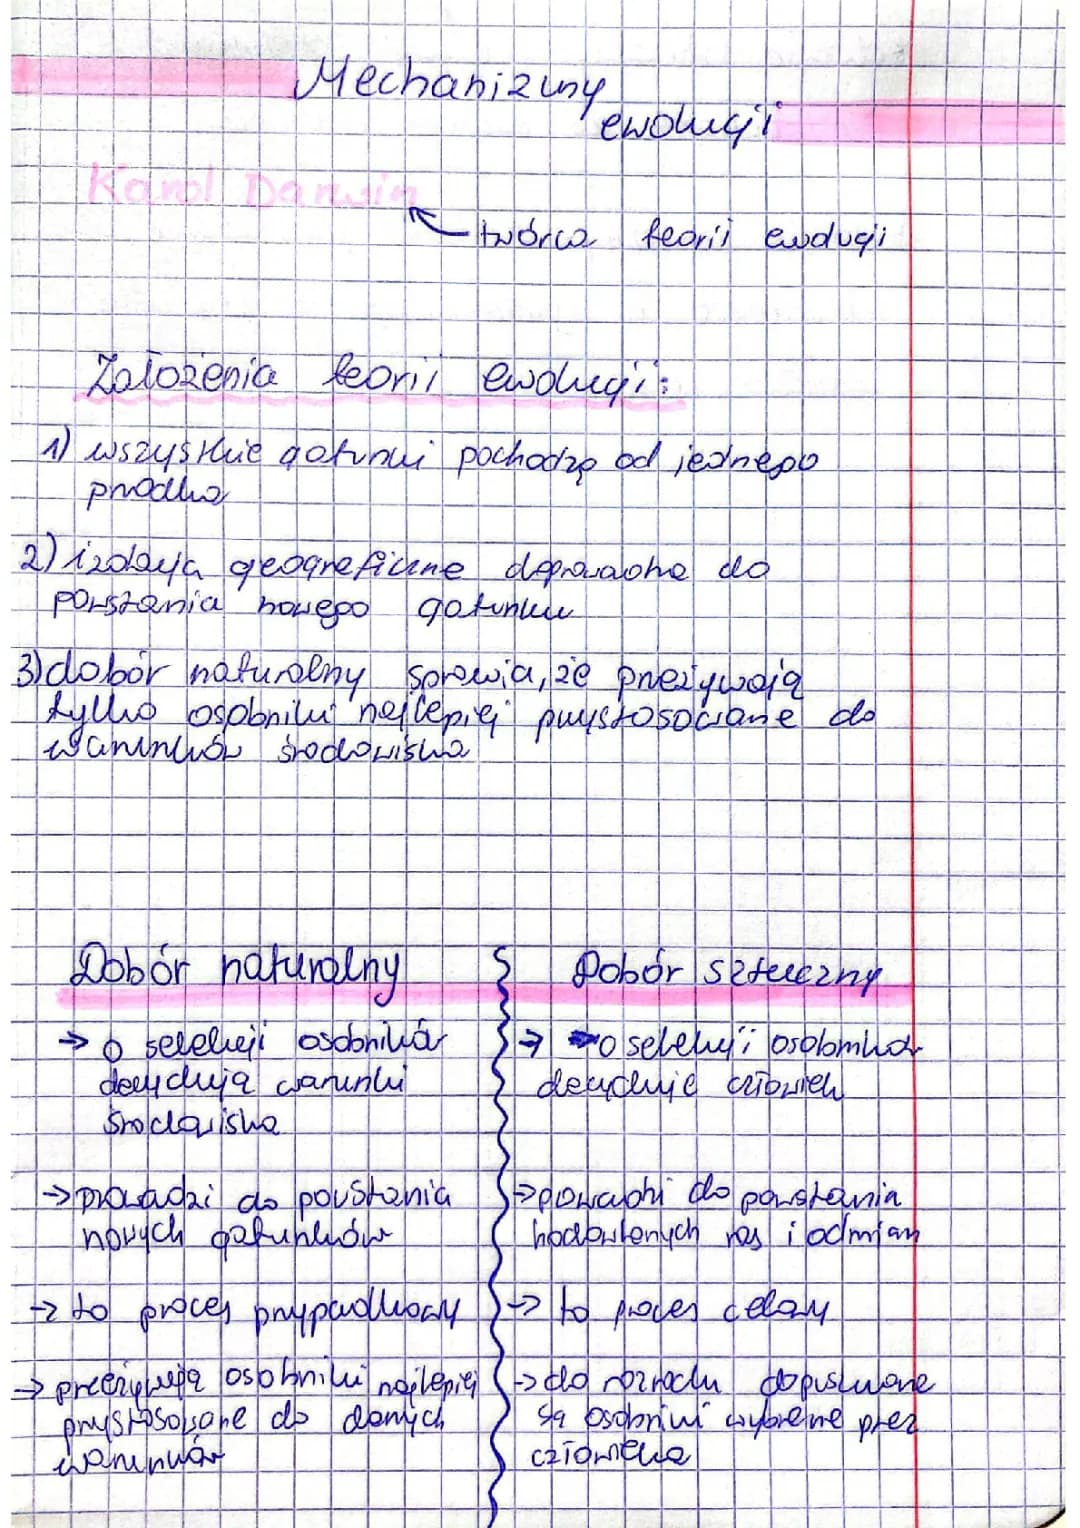 Mechanizmy
ewolucji
Karol Darwin
twórca teorii ewolucji
Założenia teorii ewolucji:
1) wszyskie gatunki pochodzą od jednego
przodka
2) izolacja geograficzne doprowadna do
powstania nowego gatunku
3) dobór naturalny sprawia, że przeżywają
tylko osobniki najlepiej przystosowane do
warunków środowiska
Dobór naturalny
→ o selekcji osobników
decydują warunki
środowiska
→ prowadzi do powstania
nowych gatunków
→ to proces przypadkowy
→ przeżywają osobniki najlepiej
przystosowane do danych
warunków
Dobór sztuczny
→ o selekcji osobników
decyduje człowiek
→ powadzi do powstania
hodowlanych ras i odmian
→ to proces celowy
→ do rozrodu dopuszczane
są osobniki wybrane przez
człowieka